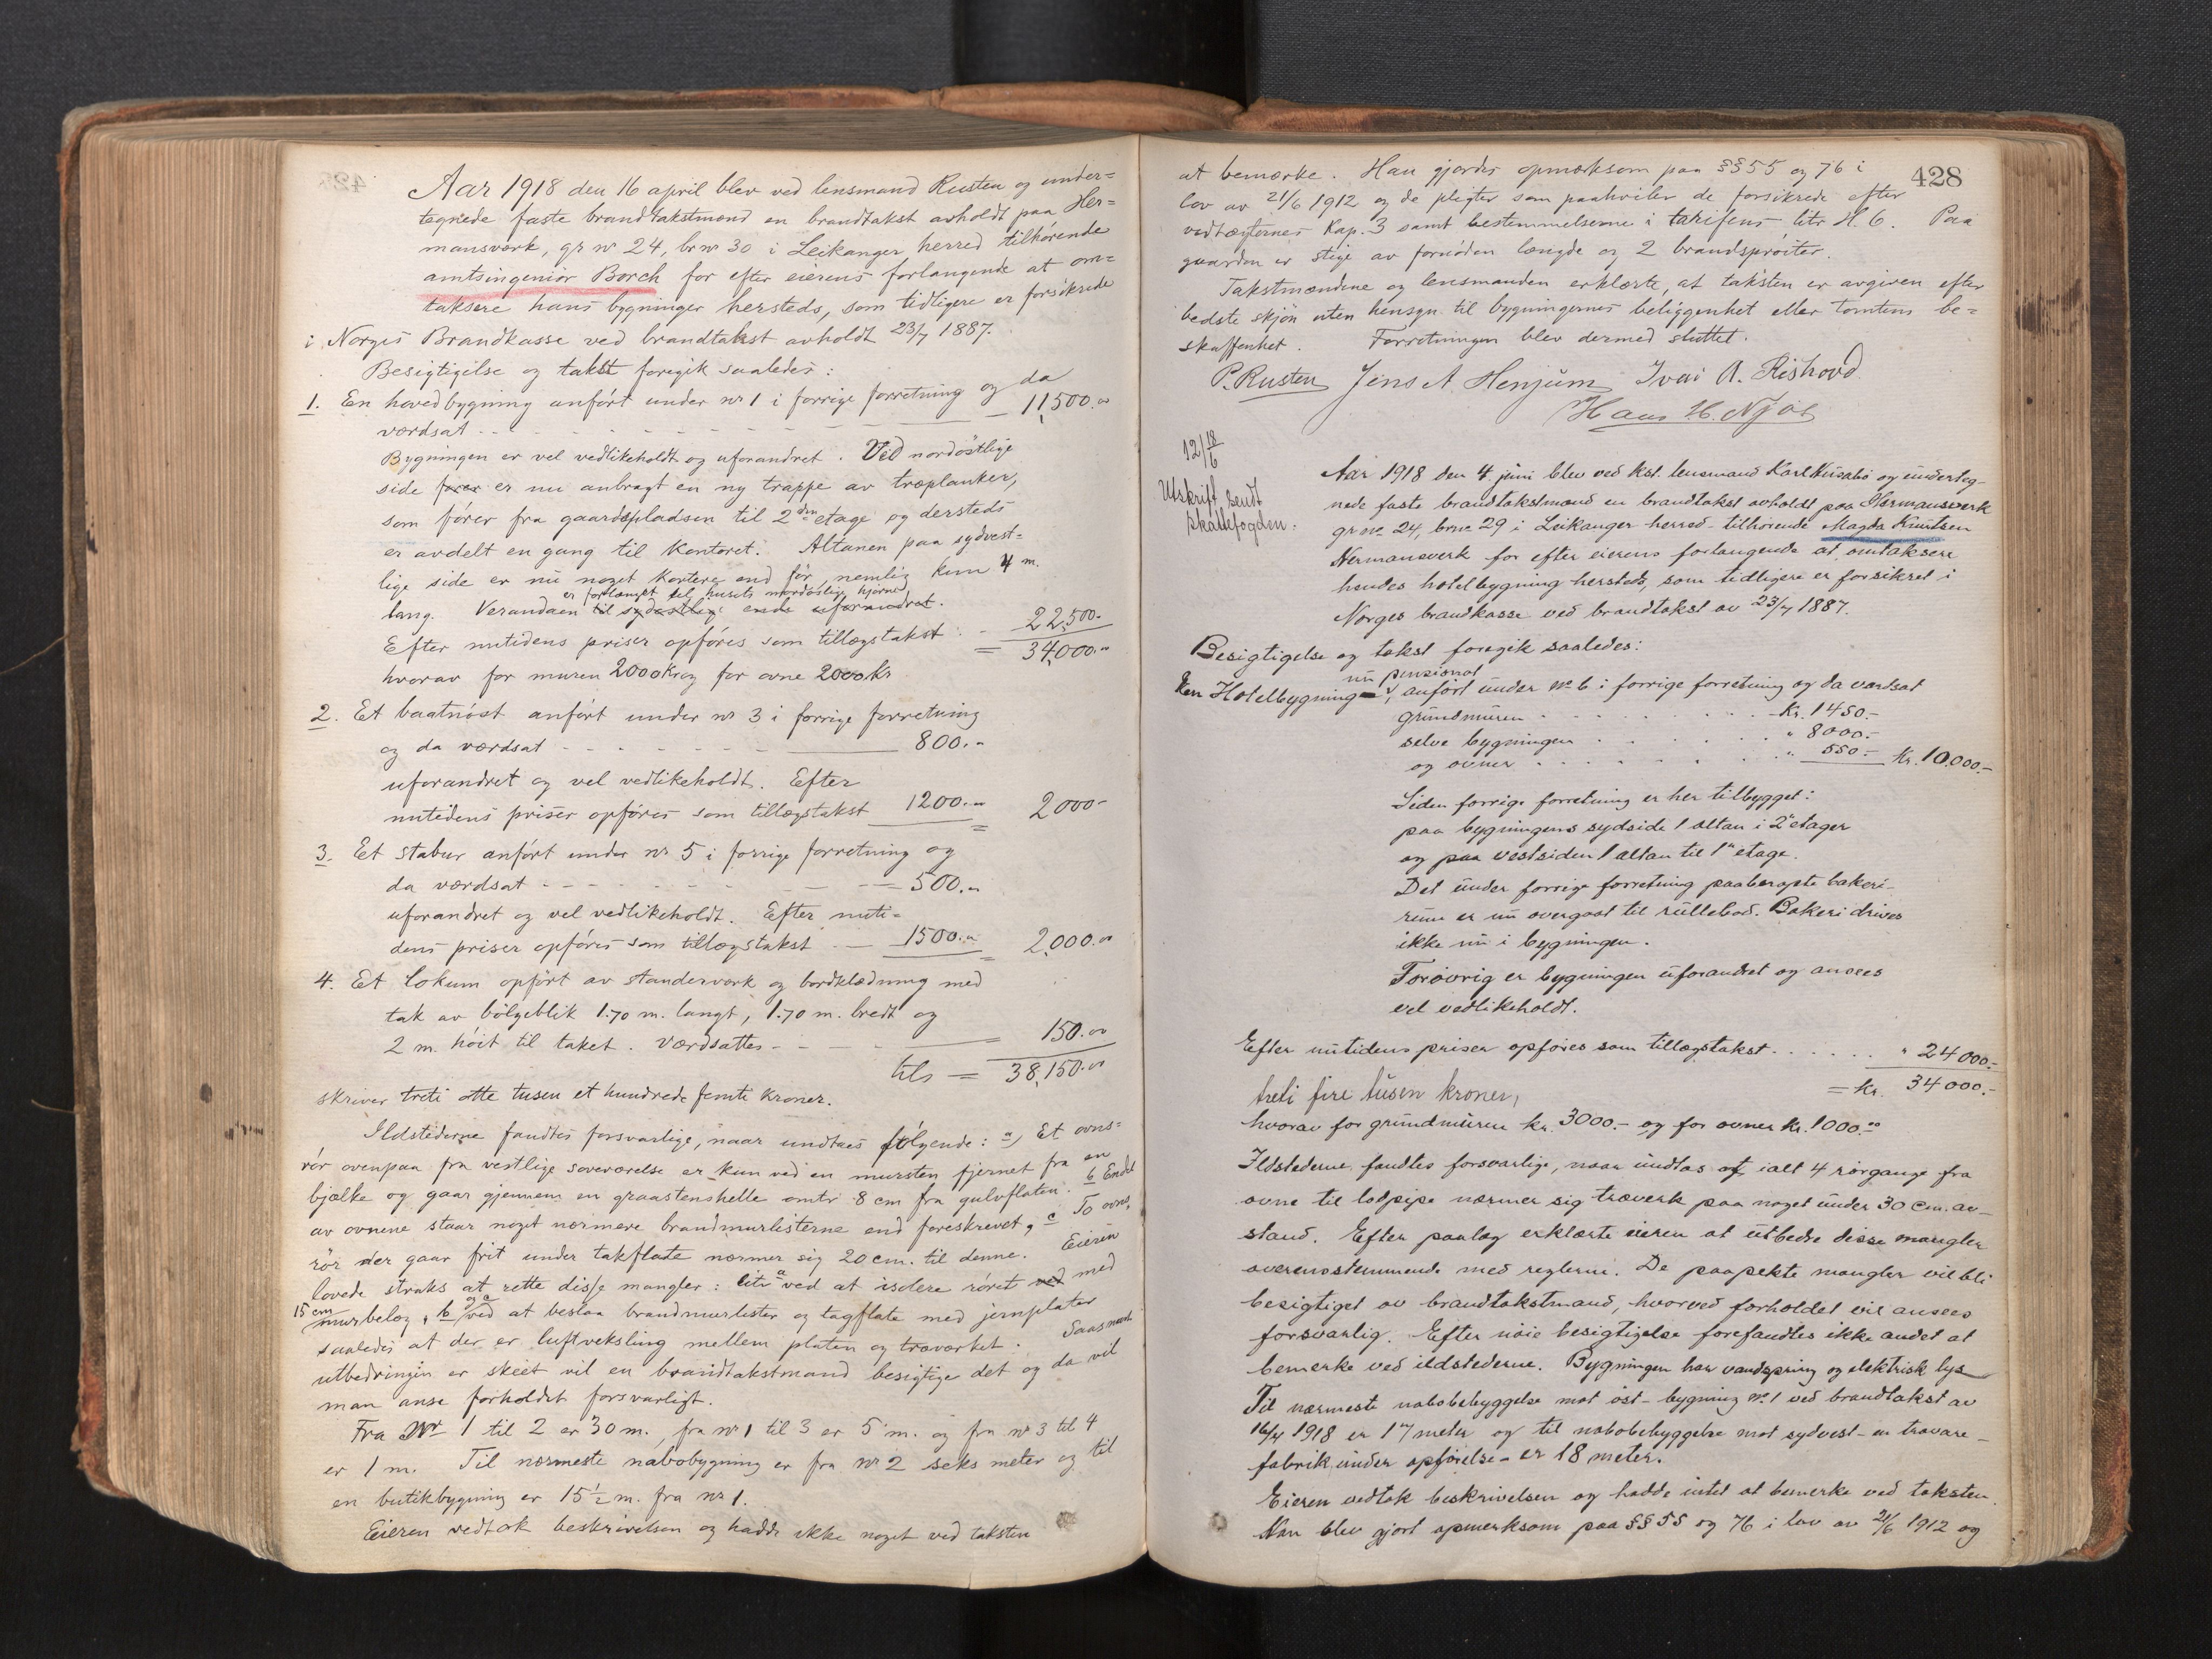 Aar 1918 den 16 april blev ved lensmand Rusten og under=
tegnede faste brandtakstmænd en brandtakst avholdt paa Her=
mansværk, gr nr 24, br nr 30 i Leikanger herred tilhørende
amtsingeniør Borch for efter eierens forlangende at om=
taksere hans bygninger hersteds, som tidligere er forsikrede
i Norges Brandkasse ved brandtakst avholdt 23/7 1887.
Besigtigelse og takst foregik saaledes:
1. En hovedbygning anført under nr 1 i forrige forretning og da
værdsat - - - 11,500.00
Bygningen er vel vedlikeholdt og uforandret. Ved nordøstlige
side er nu anbragt en ny trappe av træplanker,
som fører fra gaardspladsen til 2den etage og dersteds
er avdelt en gang til kontoret. Altanen paa sydvest=
lige side er nu noget kortere end før, nemlig kun 4 m.
er forlænget til husets nordøstlige hjørne
lang. Verandaen til sydøstlige ende uforandret.
Efter nutidens priser opføres som tillægstakst - 22,500.-
= 34,000.00
hvorav for muren 2000 Kr og for ovne 2000 Kr
2. Et baatnøst anført under nr 3 i forrige forretning
og da værdsat - - - 800.-
uforandret og vel vedlikeholdt. Efter
nutidens priser opføres som tillægstakst 1200.- = 2000-
3. Et stabur anført under nr 5 i forrige forretning og
da værdsat - - - 500.-
uforandret og vel vedlikeholdt. Efter nuti=
dens priser opføres som tillægstakst - 1500.- = 2,000.00
4. Et lokum opført av standerværk og bordklædning med
tak av bølgeblik 1.70 m. langt, 1.70 m. bredt og
2 m. høit til taket. Værdsattes - - - = 150.00
tils = 38,150.00
skriver treti otte tusen et hundrede femti kroner.
Ildstederne fandtes forsvarlige, naar undtaes følgende: a) Et ovns=
rør ovenpaa fra vestlige soveværelse er kun ved en mursten fjernet fra en
bjælke og gaar gjennem en graastenshelle omtr 8 cm fra gulvflaten. b Endel
av ovnene staar noget nærmere brandmurlisterne end foreskrevet, c To ovns=
rør der gaar frit under takflate nærmer sig 20 cm. til denne. Eieren
lovede straks at rette disse mangler: litr a ved at isolere røret ved med
15 cm murbelæg, b og c ved at beslaa brandmurlister og tagflate med jernplater
saaledes at der er luftveksling mellem platen og træværket. Saasnart
utbedringen er skeet vil en brandtakstmand besigtige det og da vil
man anse forholdet forsvarligt.
Fra Nr 1 til 2 er 30 m., fra nr 1 til 3 er 5 m. og fra nr 3 til 4
er 1 m. Til nærmeste nabobygning er fra nr 2 seks meter og til
en butikbygning er 15½ m. fra nr 1.
Eieren vedtok beskrivelsen og hadde ikke noget ved taksten
428
at bemærke. Han gjordes opmærksom paa §§ 55 og 76 i
lov av 21/6 1912 og de pligter som paahviler de forsikrede efter
vedtægternes Kap. 3 samt bestemmelserne i tarifens litr H. 6. Paa
gaarden er stige av fornøden længde og 2 brandsprøiter.
Takstmændene og lensmanden erklærte, at taksten er avgiven efter
bedste skjøn uten hensyn til bygningernes beliggenhet eller tomtens be=
skaffenhet. Forretningen blev dermed sluttet.
P. Rusten Jens A. Henjum Ivar A. Rishovd
Hans H. Njøs
12/6 18
Utskrift sendt
skattefogden.
Aar 1918 den 4. juni blev ved kst. lensmand Karl Husabø og underteg-
nede faste brandtakstmænd en brandtakst avholdt paa Hermansverk
gr no 24, br no 29 i Leikanger herred - tilhørende Magda Knutsen
Hermansverk for efter eierens forlangende at omtaksere
hendes hotelbygning hersteds, som tidligere er forsikret i
Norges brandkasse ved brandtakst av 23/7 1887.
Besigtigelse og takst foregik saaledes:
nu pensionat
En Hotelbygning, anført under no 6 i forrige forretning og da værdsat
grundmuren . . . Kr. 1450.-
selve bygningen . . . " 8000.-
og ovner . . . " 550.- Kr. 10,000.-
Siden forrige forretning er her tilbygget:
paa bygningens sydside 1 altan i 2 etager
og paa vestsiden 1 altan til 1ste etage.
Det under forrige forretning paaberopte bakeri-
rum er nu overgaat til rullebod. Bakeri drives
ikke nu i bygningen.
Forøvrig er bygningen uforandret og ansees
vel vedlikeholdt.
Efter nutidens priser opføres som tillægstakst . . . " 24000.-
= Kr. 34000.-
treti fire tusen kroner,
hvorav for grundmuren kr. 3000.- og for ovner Kr. 1000.00
Ildstederne fandtes forsvarlige, naar undtas at ialt 4 rørgange fra
ovne til lodpipe nærmer sig træverk paa noget under 30 cm. av-
stand. Efter paalæg erklærte eieren at utbedre disse mangler
overensstemmende med reglerne. De paapekte mangler vil bli
besigtiget av brandtakstmand, hvorved forholdet vil ansees
forsvarlig. Efter nøie besigtigelse forefandtes ikke andet at
bemerke ved ildstederne. Bygningen har vandspring og elektrisk lys
Til nærmeste nabobebyggelse mot øst - bygning no 1 ved brandtakst av
16/4 1918 er 17 meter og til nabobebyggelse mot sydvest - en trævare-
fabrik under opførelse - er 18 meter.
Eieren vedtok beskrivelsen og hadde intet at bemerke ved taksten.
Han blev gjort opmerksom paa §§ 55 og 76 i lov av 21/6 1912 og